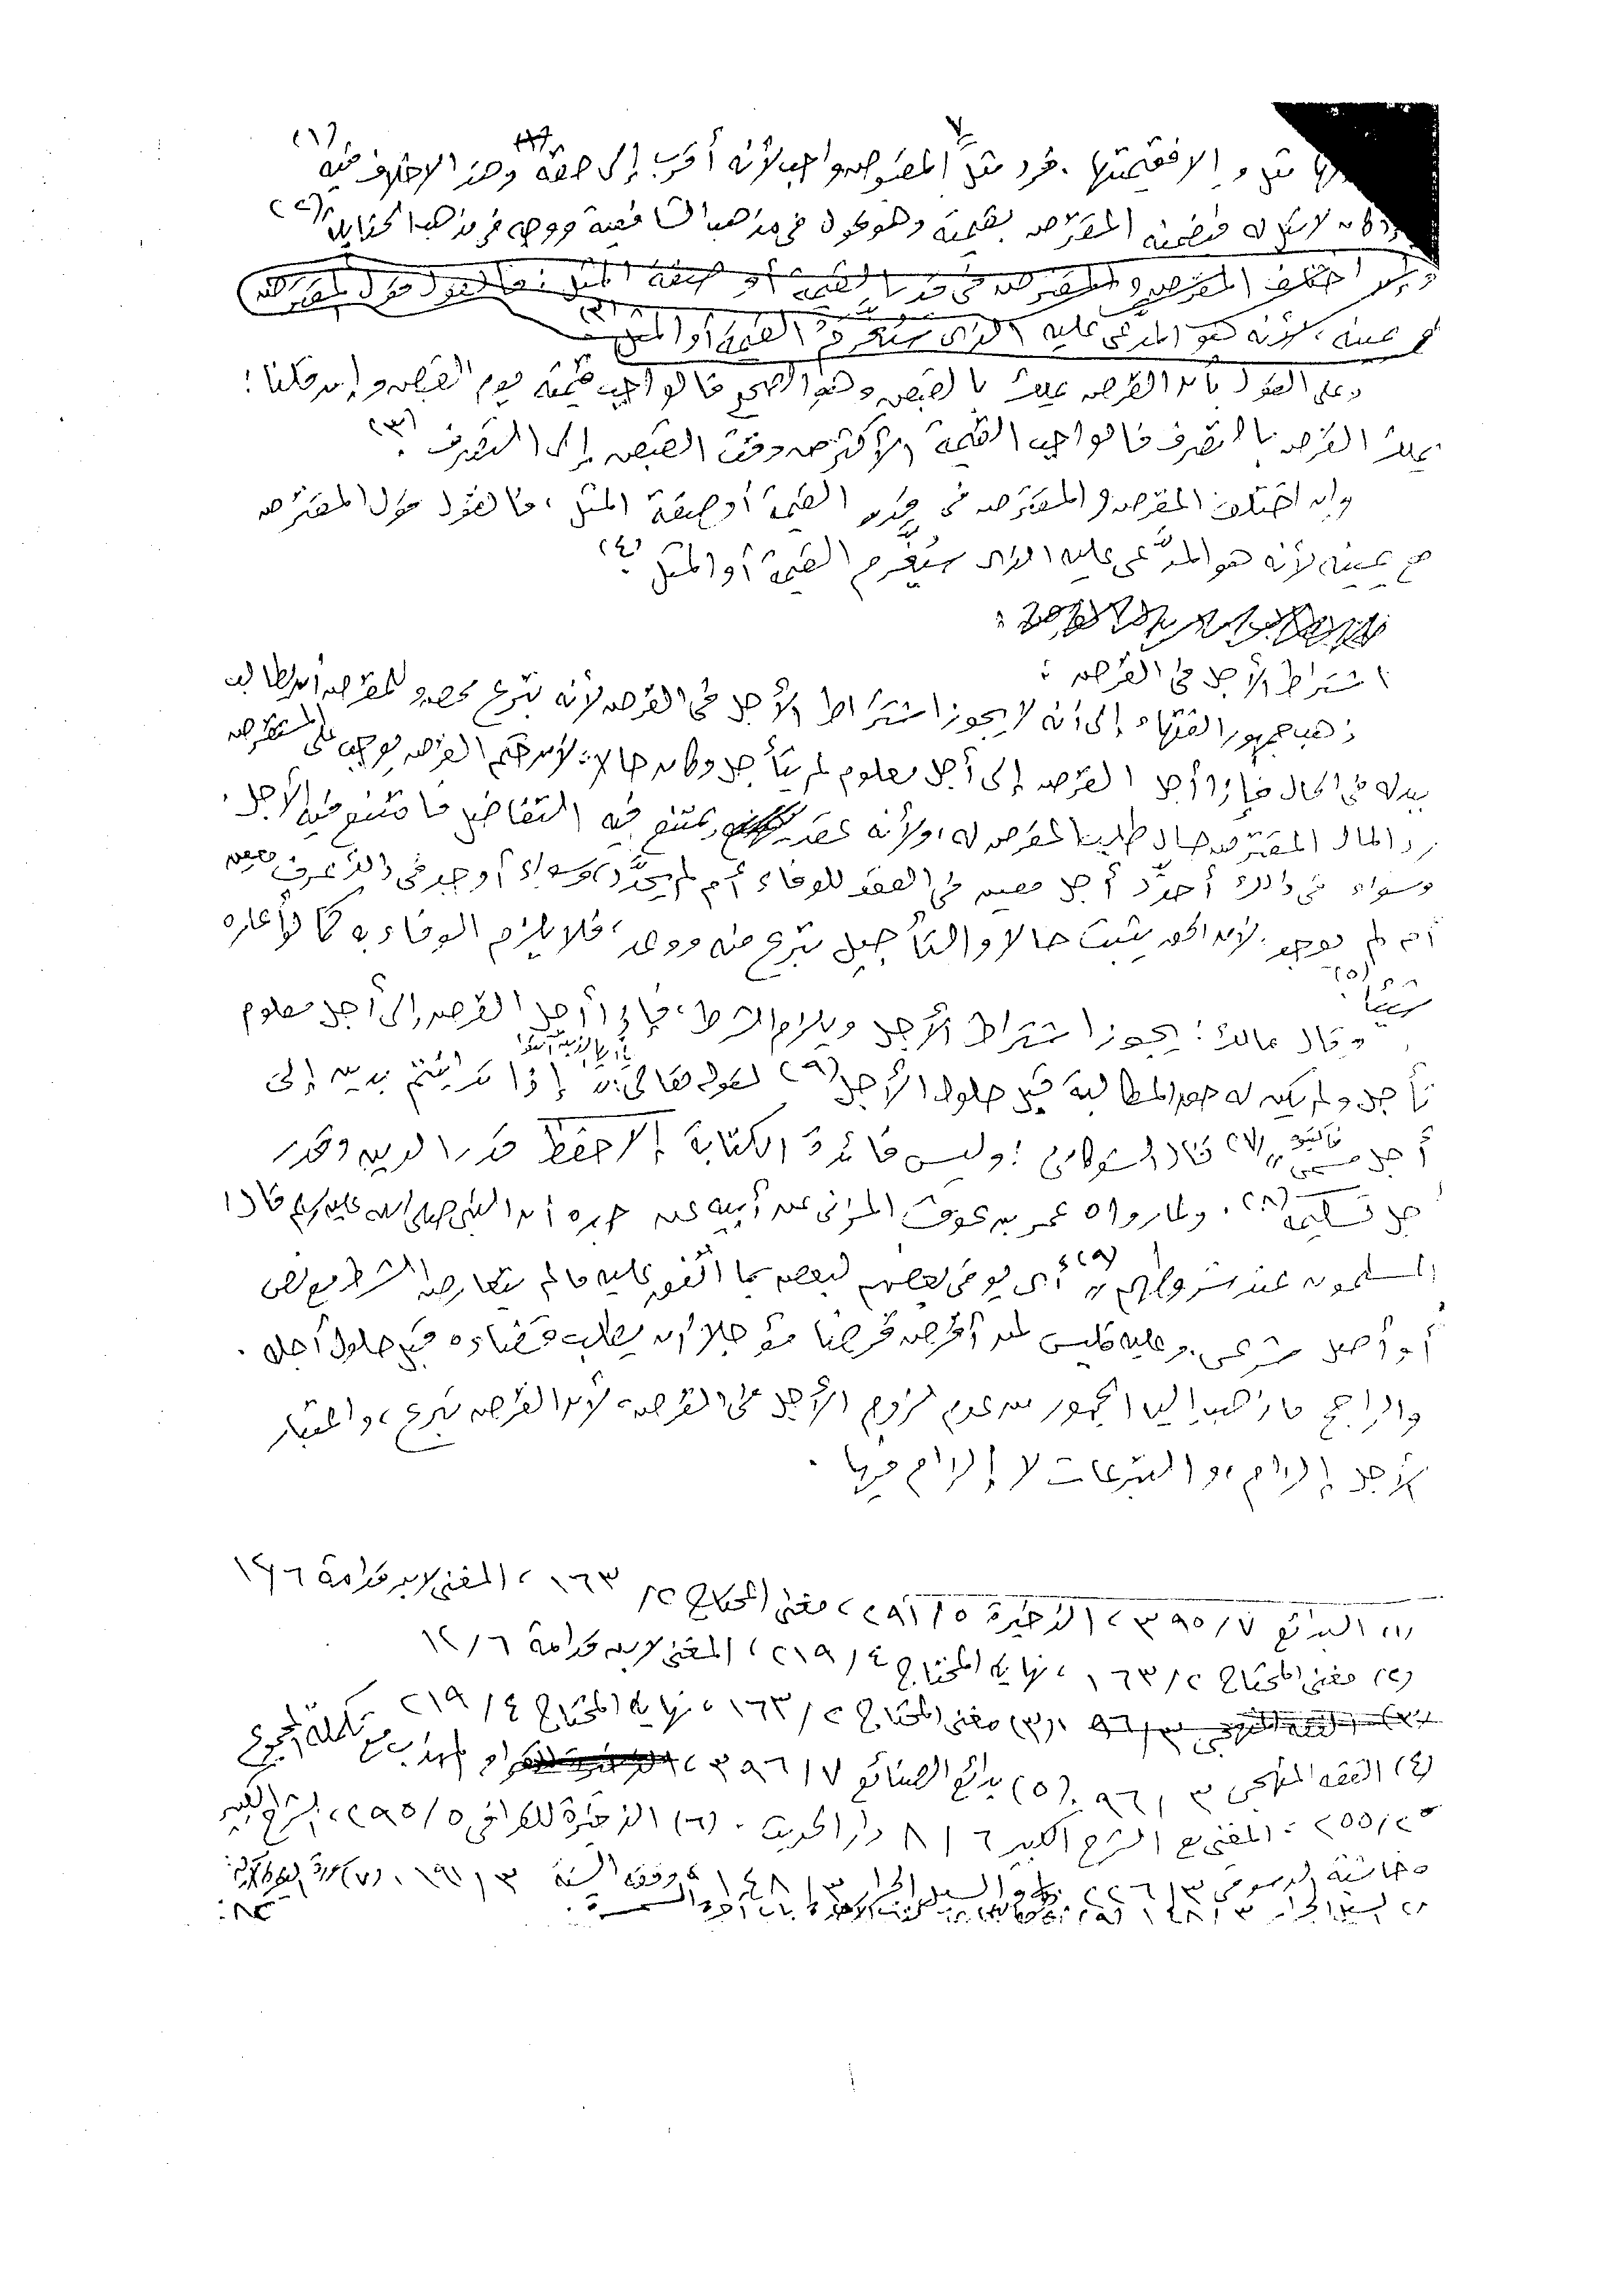 ٧
لها مثل وإلا فقيمتها . فرد مثل المقبوض واجب لأنه أقرب إلى حقه وهذا لا خلاف فيه (١)
وإن كان لا مثل له فيضمنه المقترض بقيمته وهو قول في مذهب الشافعية ووجه في مذهب الحنابلة (٢)
وإن اختلف المقرض والمقترض في قدر القيمة أو صفة المثل : فالقول قول المقترض
مع يمينه ، لأنه هو المدعى عليه الذي سيغرم القيمة أو المثل (٣)
وعلى القول بأن القرض يملك بالقبض وهو الصحيح فالواجب قيمته يوم القبض وإن قلنا :
يملك القرض بالتصرف فالواجب القيمة الأكثر من وقت القبض إلى التصرف (٣) .
وإن اختلف المقرض والمقترض في قدر القيمة أو صفة المثل ، فالقول قول المقترض
مع يمينه لأنه هو المدَّعى عليه الذي سيُغَرَّم القيمة أو المثل (٤) .
اشتراط الأجل في القرض :
ذهب جمهور الفقهاء إلى أنه لا يجوز اشتراط الأجل في القرض لأنه تبرع محض وللمقرض أن يطالب
ببدله في الحال فإذا أجل القرض إلى أجل معلوم لم يتأجل وكان حالا ؛ لأن حكم القرض يوجب على المستقرض
رد المال المقترض حال طلب المقرض له ، ولأنه عقد يمتنع فيه التفاضل فامتنع فيه الأجل .
وسواء في ذلك أحدِّد أجل معين في العقد للوفاء أم لم يحدَّد ، وسواء أوجد في ذلك عرف معين
أم لم يوجد . لأن الحق يثبت حالا والتأجيل تبرع منه ووعد ، فلا يلزم الوفاء به كما لو أعاره
شيئا (٥) .
وقال مالك : يجوز اشتراط الأجل ويلزم الشرط ، فإذا أجل القرض إلى أجل معلوم
تأجل ولم يكن له حق المطالبة قبل حلول الأجل (٦) لقوله تعالى : " يا أيها الذين آمنوا إذا تداينتم بدين إلى
أجل مسمى فاكتبوه " (٧) قال الشوكاني : وليس فائدة الكتابة إلا حفظ قدر الدين وقدر
أجل تسليمه (٨) . ولما رواه عمر بن عوف المزني عن أبيه عن جده أن النبي صلى الله عليه وسلم قال
المسلمون عند شروطهم " (٩) أي يوفى بعضهم لبعض بما اتفق عليه ما لم يتعارض الشرط مع نص
أو أصل شرعي . وعليه فليس لمن أقرض قرضا مؤجلا أن يطلب قضاءه قبل حلول أجله .
والراجح ما ذهب إليه الجمهور من عدم لزوم الأجل في القرض ، لأن القرض تبرع ، واعتبار
الأجل إلزام ، والتبرعات لا إلزام فيها .
(١) البدائع ٧/ ٣٩٥ ، الذخيرة ٥/ ٢٩١ ، مغنى المحتاج ٢/ ١٦٣ ، المغنى لابن قدامة ٦/
(٢) مغنى المحتاج ٢/ ١٦٣ ، نهاية المحتاج ٤/ ٢١٩ ، المغنى لابن قدامة ٦/ ١٢
(٣) مغنى المحتاج ٢/ ١٦٣ ، نهاية المحتاج ٤/ ٢١٩
(٤) الفقه المنهجي ٣/ ٩٦ . (٥) بدائع الصنائع ٧/ ٣٩٦ ، المهذب مع تكملة المجموع
٢٥٥ ، المغنى مع الشرح الكبير ٦/ ٨ دار الحديث . (٦) الذخيرة للقرافى ٥/ ٢٩٥ ، الشرح الكبير
وحاشية الدسوقي ٣/ ٢٢٦ والسيل الجرار ٣/ ١٤٨ ، وفقه السنة ٣/
السيل الجرار ٣/ ١٤٨